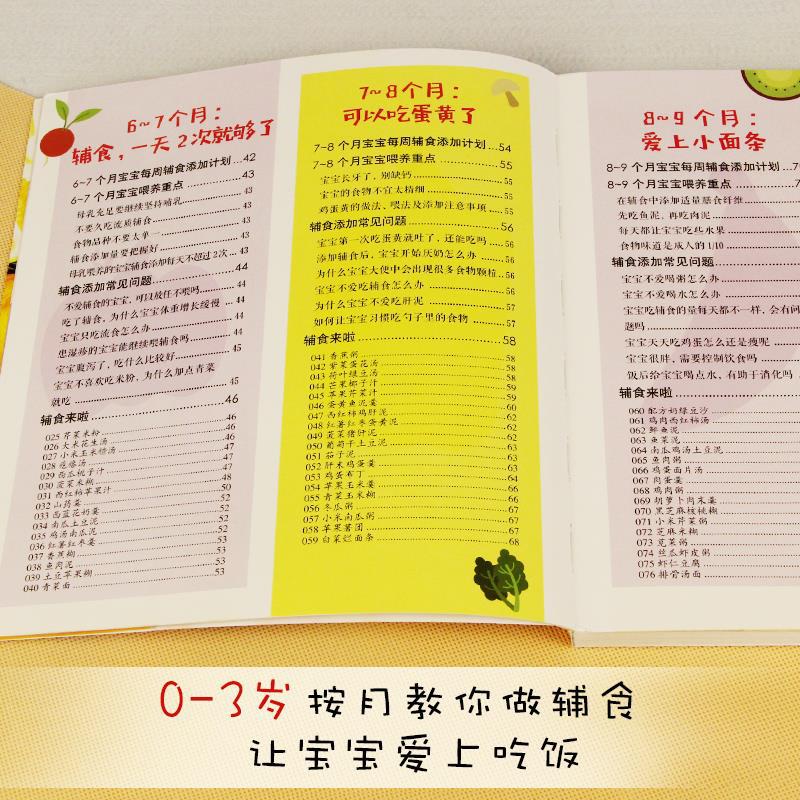 6~7个月：
辅食，一天2次就够了
6-7 个月宝宝每周辅食添加计划...42
6-7 个月宝宝喂养重点...43
母乳充足要继续坚持哺乳...43
不要久吃流质辅食...43
食物品种不要太单一...43
辅食添加量要把握好...43
母乳喂养的宝宝辅食添加每天不超过2次...43
辅食添加常见问题...44
不爱辅食的宝宝，可以放任不喂吗...44
吃了辅食，为什么宝宝体重增长缓慢...44
宝宝只吃流食怎么办...44
患湿疹的宝宝能继续喂辅食吗...44
宝宝腹泻了，吃什么比较好...45
宝宝不喜欢吃米粉，为什么加点青菜
就吃...45
辅食来啦...46
025 芹菜米粉...46
026 大米花生汤...46
027 小米玉米糁汤...47
029 西瓜桃子汁...47
030 菠菜米糊...48
031 西红柿苹果汁...50
032 山药羹...50
033 西蓝花奶羹...52
034 南瓜土豆泥...52
035 鸡汤南瓜泥...52
036 红薯红枣羹...53
037 香蕉糊...53
038 鱼肉泥...53
039 土豆苹果糊...53
040 青菜面...53
7~8个月：
可以吃蛋黄了
7-8 个月宝宝每周辅食添加计划...54
7-8 个月宝宝喂养重点...55
宝宝长牙了，别缺钙...55
宝宝的食物不宜太精细...55
鸡蛋黄的做法、喂法及添加注意事项...55
辅食添加常见问题...56
宝宝第一次吃蛋黄就吐了，还能吃吗...56
添加辅食后，宝宝开始厌奶怎么办...56
为什么宝宝大便中会出现很多食物颗粒...56
宝宝不爱吃辅食怎么办...56
为什么宝宝不爱吃肝泥...56
如何让宝宝习惯吃勺子里的食物...56
辅食来啦...58
041 香蕉粥...58
042 紫菜蛋花汤...58
043 荷叶绿豆汤...58
044 芒果椰子汁...59
045 苹果芹菜汁...59
046 蛋黄鱼泥羹...60
047 西红柿鸡肝泥...60
048 红薯红枣蛋黄泥...62
049 菠菜猪肝泥...62
050 葡萄干土豆泥...62
051 茄子泥...63
052 肝末鸡蛋羹...63
053 鸡蛋布丁...64
054 苹果玉米羹...64
055 青菜玉米糊...66
056 冬瓜粥...67
057 小米南瓜粥...67
058 苹果薯团...67
059 白菜烂面条...68
8~9个月：
爱上小面条
8-9 个月宝宝每周辅食添加计划
8-9 个月宝宝喂养重点
在辅食中添加适量膳食纤维
先吃鱼泥，再吃肉泥
每天都让宝宝吃些水果
食物味道是成人的 1/10
辅食添加常见问题
宝宝不爱喝粥怎么办
宝宝不爱喝水怎么办
宝宝吃辅食的量每天都不一样，会有问
题吗
宝宝天天吃鸡蛋怎么还是瘦呢
宝宝很胖，需要控制饮食吗
饭后给宝宝喝点水，有助于消化吗
辅食来啦
060 配方奶绿豆沙
061 鸡肉西红柿汤
062 鲜鱼泥
063 鱼菜泥
064 南瓜鸡汤土豆泥
065 鱼肉粥
066 鸡蛋面片汤
067 肉蛋羹
068 鸡肉粥
069 胡萝卜肉末羹
070 黑芝麻核桃糊
071 小米芹菜粥
072 芝麻米糊
073 苋菜粥
074 丝瓜虾皮粥
075 虾仁豆腐
076 排骨汤面
0-3岁 按月教你做辅食
让宝宝爱上吃饭